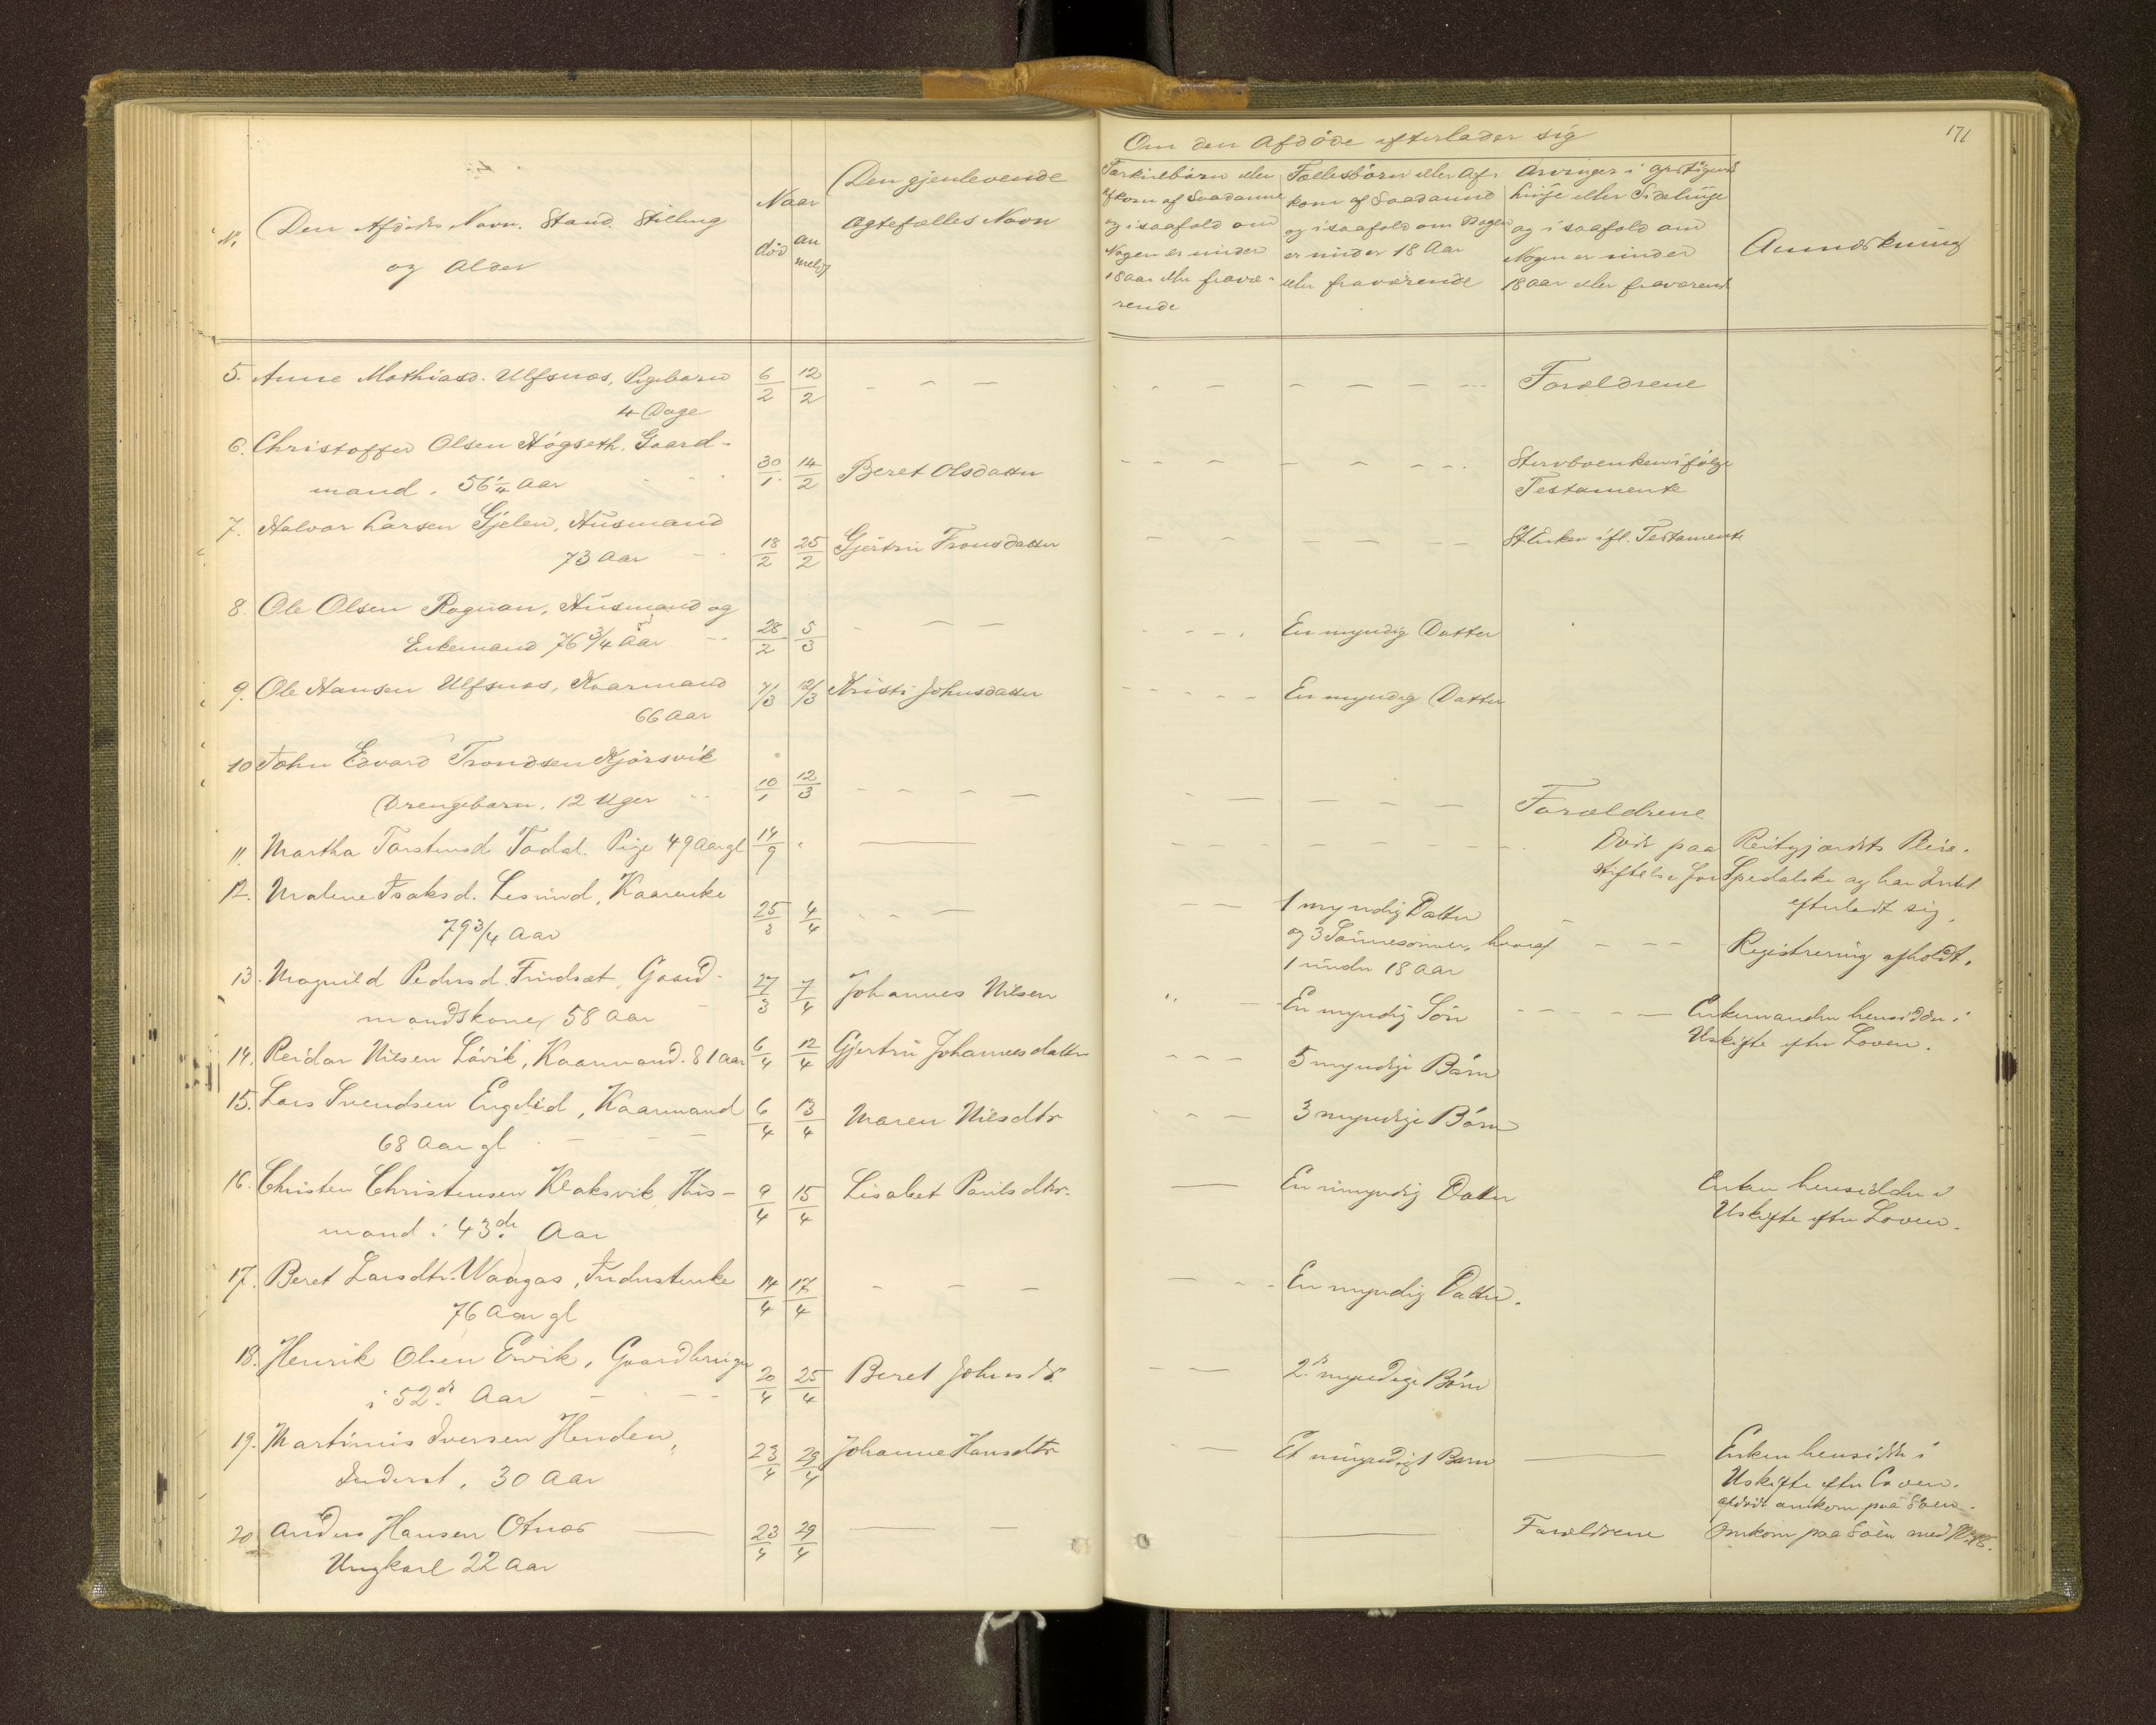 171
Om den Afdöde efterlader sig
No
Den Afdödes Navn. Stand. Stilling
og Alder
Naar
död
an
meldt
Den gjenlevende
Ægtefælles Navn
Særkulbörn eller
Afkom af Saadanne
og isaafald om
Nogen er under
18 Aar eller fravæ-
rende
Fællesbörn eller Af-
kom af Saadanne
og isaafald om Nogen
er under 18 Aar
eller fraværende
Arvinger i opstigende
Linje eller Sidelinje
og isaafald om
Nogen er under
18 Aar eller fraværende
Anmærkning
5. Anne Mathiasd. Ulfsnæs, Pigebarn 6/2 12/2 Forældrene
4 Dage
6. Christoffer Olsen Högseth, Gaard-
mand. 56 1/4 Aar 30/1 14/2 Beret Olsdatter Stervboenken ifölge
Testamente
7. Halvor Larsen Gjelen, Husmand
73 Aar 18/2 25/2 Gjertru Tronsdatter St.Enken ifl. Testamente
8. Ole Olsen Rognan, Husmand og
Enkemand 76 3/4 Aar 28/2 5/3 En myndig Datter
9. Ole Hansen Ulfsnæs, Kaarmand 7/3 12/3 Kristi Johnsdatter En myndig Datter
66 Aar
10 John Edvard Trondsen Kjörsvik
Drengebarn. 12 Uger 10/1 12/3 Forældrene
11. Martha Torstensd. Todal. Pige 49 Aar gl 14/9 Döde paa Reitgjærdets Pleie-
stiftelse for Spedalske og har Intet
efterladt sig.
12. Malene Isaksd. Lesund, Kaarenke
79 3/4 Aar 25/3 4/4 1 myndig Datter
og 3 Sönnesönner, hvoraf
1 under 18 Aar Registrering afholdt.
13. Magnild Pedersd. Findset, Gaard-
mandskone, 58 Aar 27/3 7/4 Johannes Nilsen En myndig Sön Enkemanden hensidder i
Uskifte efter Loven.
14. Reidar Nilsen Lövik, Kaarmand. 81 Aar 6/4 12/4 Gjertru Johannesdatter 5 myndige Börn
15. Lars Svendsen Engelid, Kaarmand 6/4 13/4 Maren Nilsdtr 3 myndige Börn
68 Aar gl
16. Christen Christensen Klaksvik Hus- 9/4 15/4 Lisabet Poulsdtr. En umyndig Datter Enken hensidder i
mand i 43de Aar Uskifte efter Loven.
17. Beret Larsdtr. Waagos, Inderstenke 14/4 17/4 En myndig Datter.
76 Aar gl
18. Henrik Olsen Ervik, Gaardbruger
i 52de Aar 20/4 25/4 Beret Johnsdr. 2 myndige Börn
19. Martinus Iversen Henden,
Inderst. 30 Aar 23/4 29/4 Johanne Hansdtr Et umyndigt Barn Enken hensidder i
Uskifte efter Loven.
Afdöde omkom paa Söen.
20 Anders Hansen Otnæs 23/4 29/4 Forældrene Omkom paa Söen med
Ungkarl 22 Aar